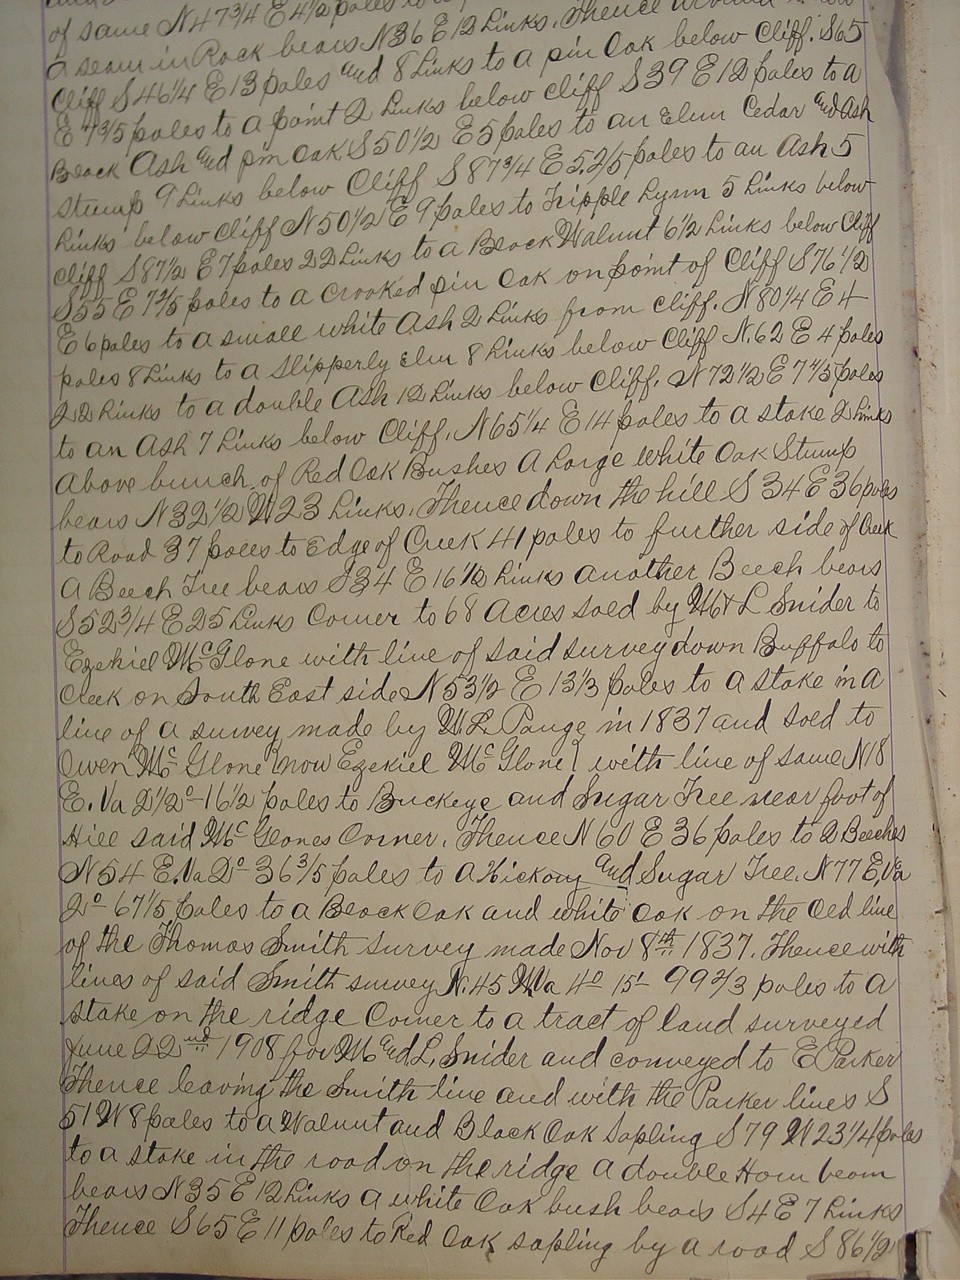 of same N 47 3/4 E 4 1/2 poles to
a seam in Rock bears N 36 E 12 Links. Thence around
Cliff S 46 1/4 E 13 poles and 8 Links to a pin Oak below Cliff. S 65
E 7 3/5 poles to a point 2 Links below cliff S 39 E 12 poles to a
Black Ash and pin Oak. S 50 1/2 E 5 poles to an Elm Cedar and Ash
stump 9 Links below Cliff S 87 3/4 E 5.2/5 poles to an Ash 5
Links below Cliff N 50 1/2 E 9 poles to Tripple Lynn 5 Links below
Cliff S 87 1/2 E 7 poles 22 Links to a Black Walnut 6 1/2 Links below Cliff
S 55 E 7 2/5 poles to a crooked pin Oak on point of Cliff S 76 1/2
E 6 poles to a small white Ash 2 Links from Cliff. N 80 1/4 E 4
poles 8 Links to a Slipperly Elm 8 Links below Cliff N. 62 E 4 poles
22 Links to a double Ash 12 Links below Cliff. N 72 1/2 E 7 4/5 poles
to an Ash 7 Links below Cliff. N 65 1/4 E 14 poles to a stake 2 Links
above bunch of Red Oak Bushes A Large white Oak Stump
bears N 32 1/2 W 23 Links. Thence down the hill S 34 E 36 poles
to Road 37 poles to Edge of Creek 41 poles to further side of Creek
a Beech Tree bears S 34 E 16 1/2 Links another Beech bears
S 52 3/4 E 25 Links Corner to 68 Acres sold by M & L Snider to
Ezekiel McGlone with line of said survey down Buffalo to
Creek on South East side N 53 1/2 E 13 1/3 poles to a stake in a
line of a survey made by W. L. in 1837 and sold to
Owen McGlone (now Ezekiel McGlone) with line of same N 18
E. Va 2 1/2° - 16 1/2 poles to Buckeye and Sugar Tree near foot of
Hill said McGlones Corner. Thence N 60 E 36 poles to 2 Beeches
N 54 E. Va 2° 36 3/5 poles to a Hickory and Sugar Tree. N 77 E, Va
2° 67 1/5 poles to a Black Oak and white Oak on the Old line
of the Thomas Smith survey made Nov 8th 1837. Thence with
lines of said Smith survey N. 45 W Va 4° 15' 99 2/3 poles to a
stake on the ridge Corner to a tract of land surveyed
June 22nd 1908 for M and L, Snider and conveyed to E Parker
Thence leaving the Smith line and with the Parker lines S
51 W 8 poles to a Walnut and Black Oak sapling S 79 W 23 1/4 poles
to a stake in the road on the ridge a double Horn beam
bears N 35 E 12 Links a white Oak bush bears S 4 E 7 Links
Thence S 65 E 11 poles to Red Oak sapling by a road S 86 1/2